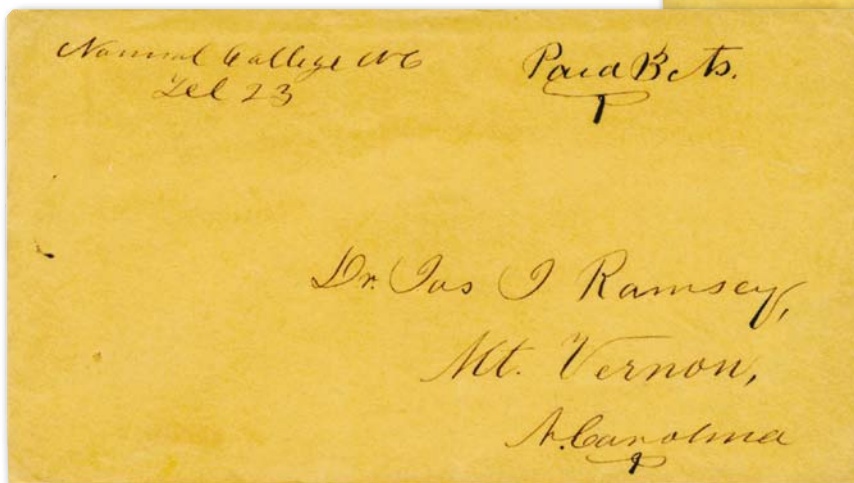 Normal College NC
Feb 23
Paid 3 cts.
Dr. Jas J Ramsey,
Mt. Vernon,
N. Carolina